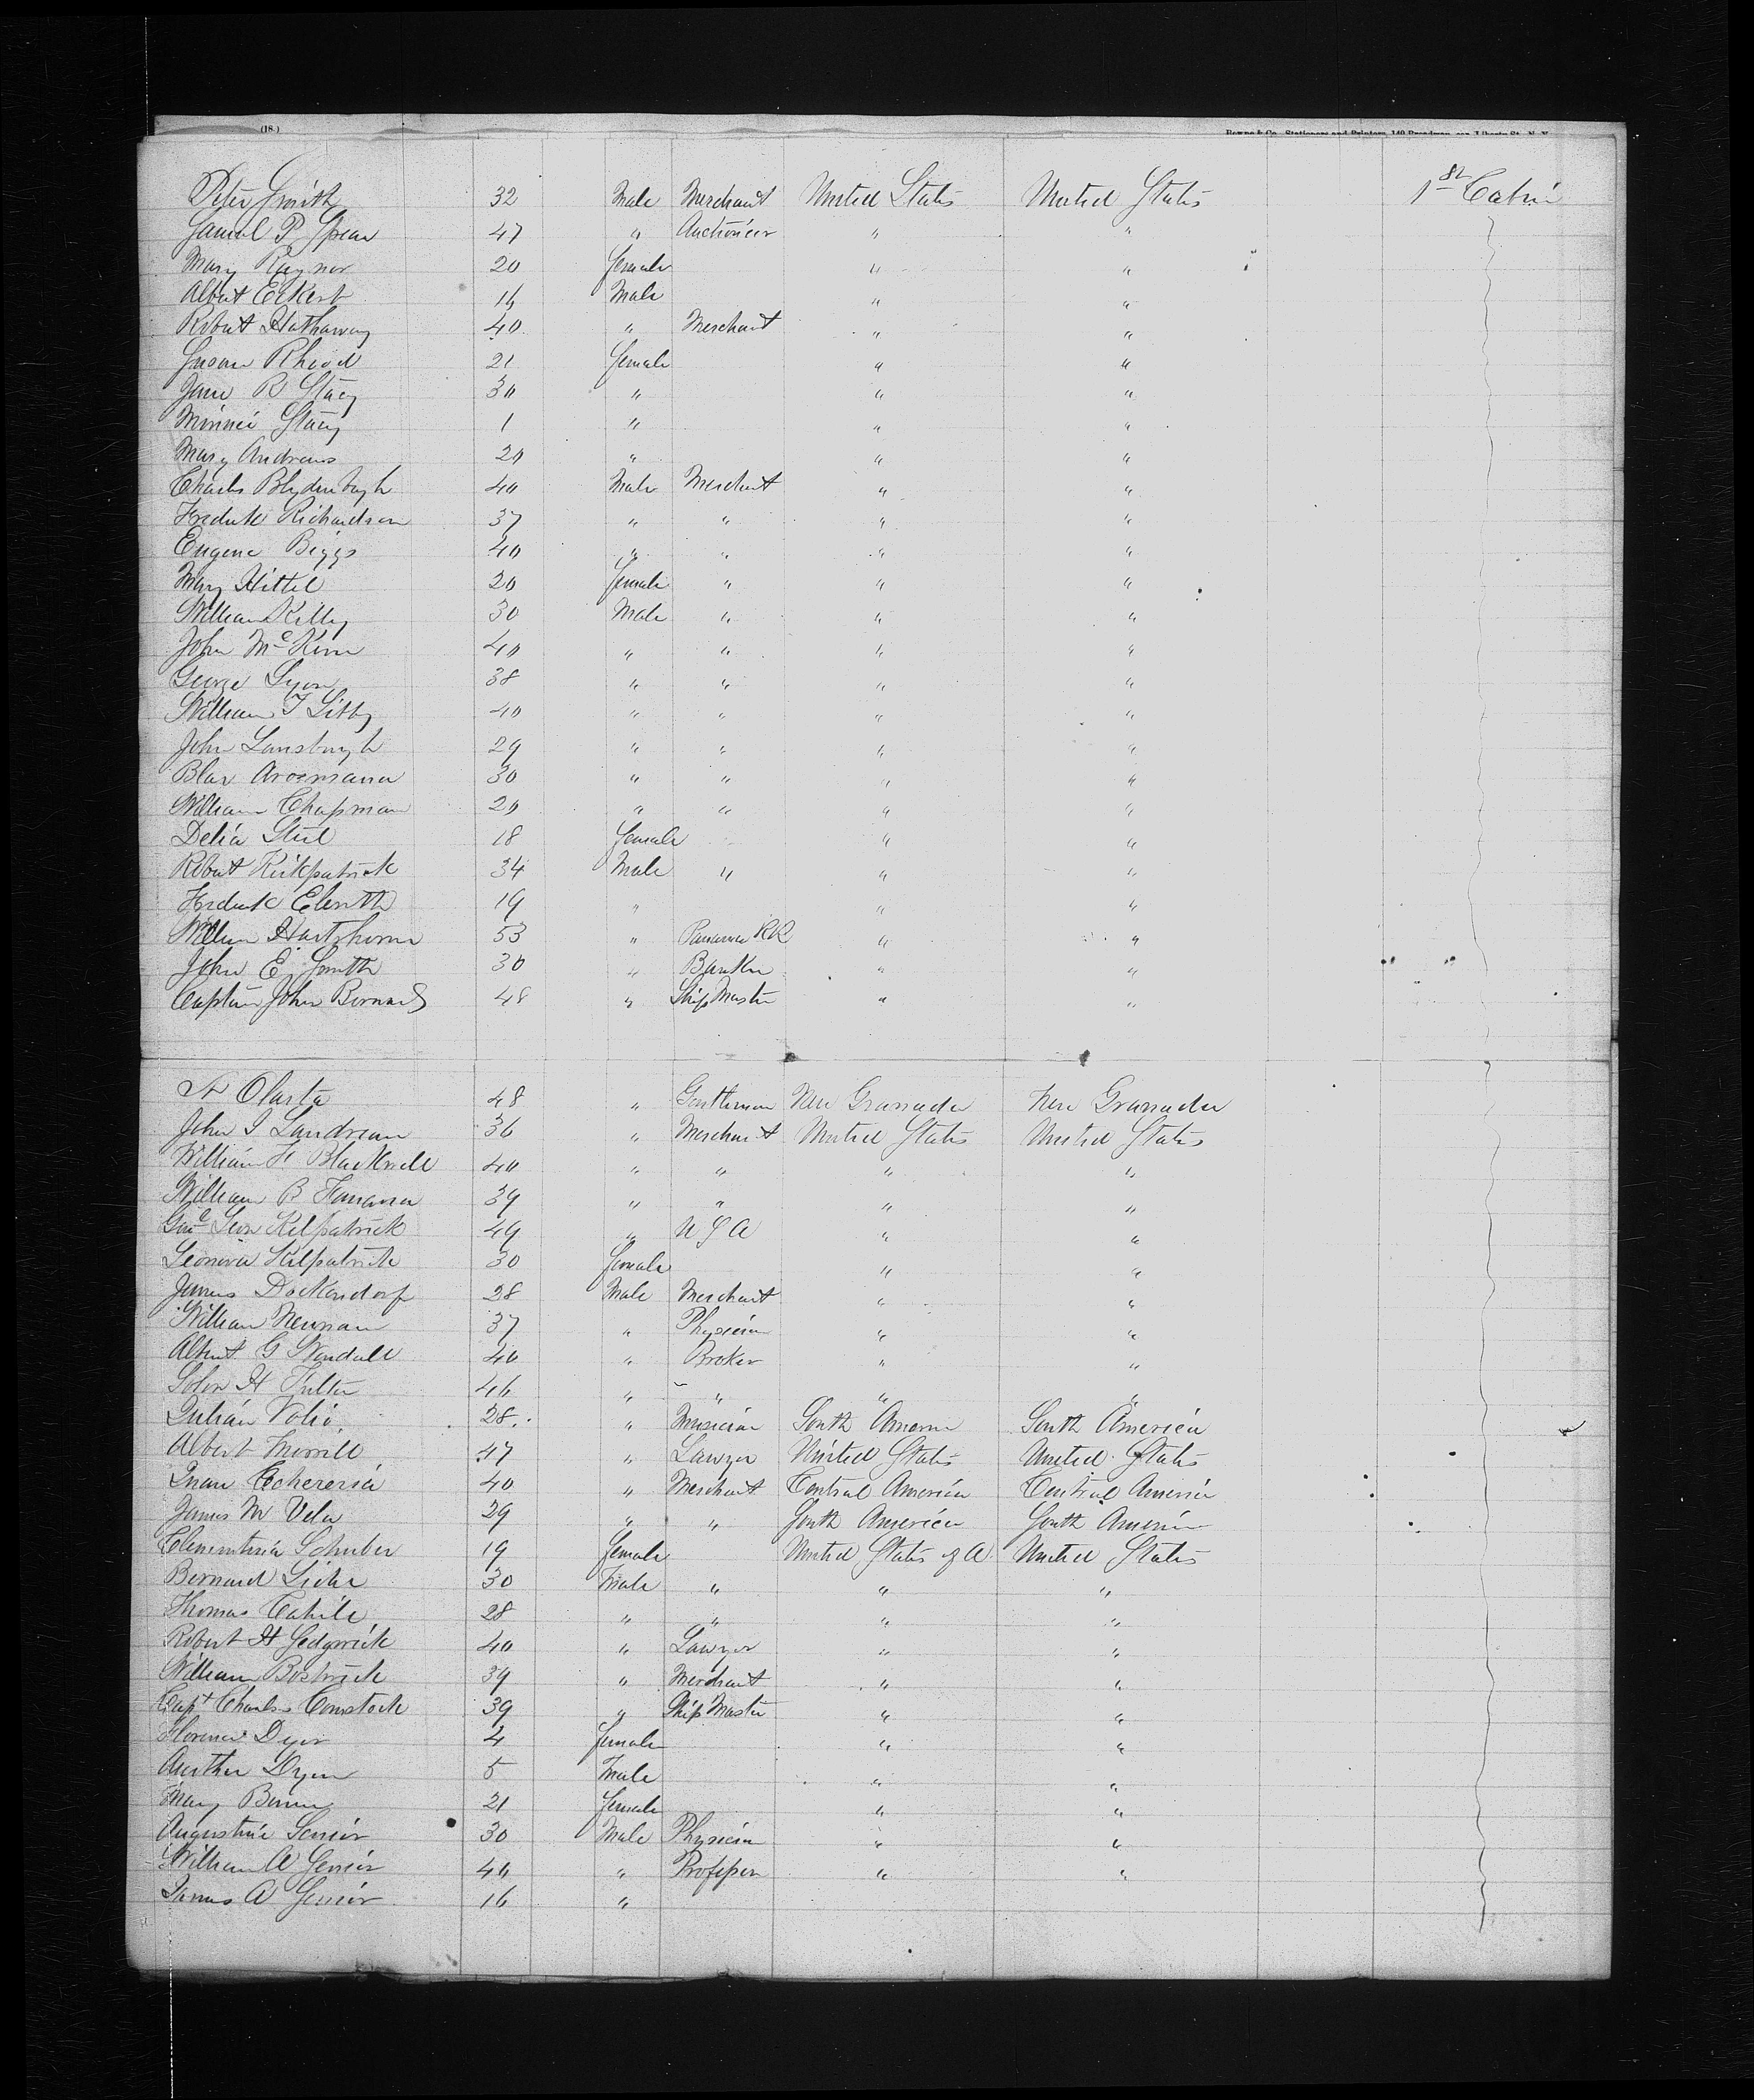 (18.)
Bowne & Co., Stationers and Printers, 149 Broadway, cor. Liberty St., N. Y.
Peter Smith 32 Male Merchant United States United States 1st Cabin
Samuel P. Spear 47 " Auctioneer " "
Mary Raynor 20 female " "
Albert Eckert 16 Male " "
Robert Hathaway 40 " Merchant " "
Susan Rhood 21 female " "
Jane R Stacy 30 " " "
Minnie Stacy 1 " " "
Mary Andrews 20 " " "
Charles Blydenburgh 40 Male Merchant " "
Fredrick Richardson 37 " " " "
Eugene Biggs 40 " " " "
Mary Hittel 20 female " " "
William Kelly 30 Male " " "
John McKim 40 " " " "
George Lyon 38 " " " "
William T Libby 40 " " " "
John Lansburgh 29 " " " "
Blas Arosmana 30 " " " "
William Chapman 20 " " " "
Delia Steel 18 female " "
Robert Kirkpatrick 34 Male " " "
Fredrick 19 " " "
William Hartshorne 53 " Panama RR " "
John E. Smith 30 " Banker " "
Captain John Bernard 48 " Ship Master " "
Olarta 48 " Gentleman New Granada New Granada
John I Landreau 36 " Merchant United States United States
William H Blackwell 40 " " " "
William B 39 " " " "
Genl Kilpatrick 49 " U S A " "
Leonora Kilpatrick 30 female " "
James Dockendorf 28 Male Merchant " "
William Newman 37 " Physician " "
Albert G Wendall 40 " Broker " "
Solon H Fulter 46 " " " "
Julian Volio 28 " Musician South America South America
Albert Merrill 47 " Lawyer United States United States
Juan Echereria 40 " Merchant Central America Central America
James M Vela 29 " " South America South America
Clementina Schuber 19 female United States of A United States
Bernard 30 Male " " "
Thomas Cahill 28 " " " "
Robert H Sedgwick 40 " Lawyer " "
William Bostwick 39 " Merchant " "
Capt Charles Comstock 39 " Ship Master " "
Florence Dyer 4 female " "
Aurther Dyer 5 Male " "
Mary 21 female " "
Augustine Senior 30 Male Physician " "
William A Senior 40 " Professor " "
James A Senior 16 "